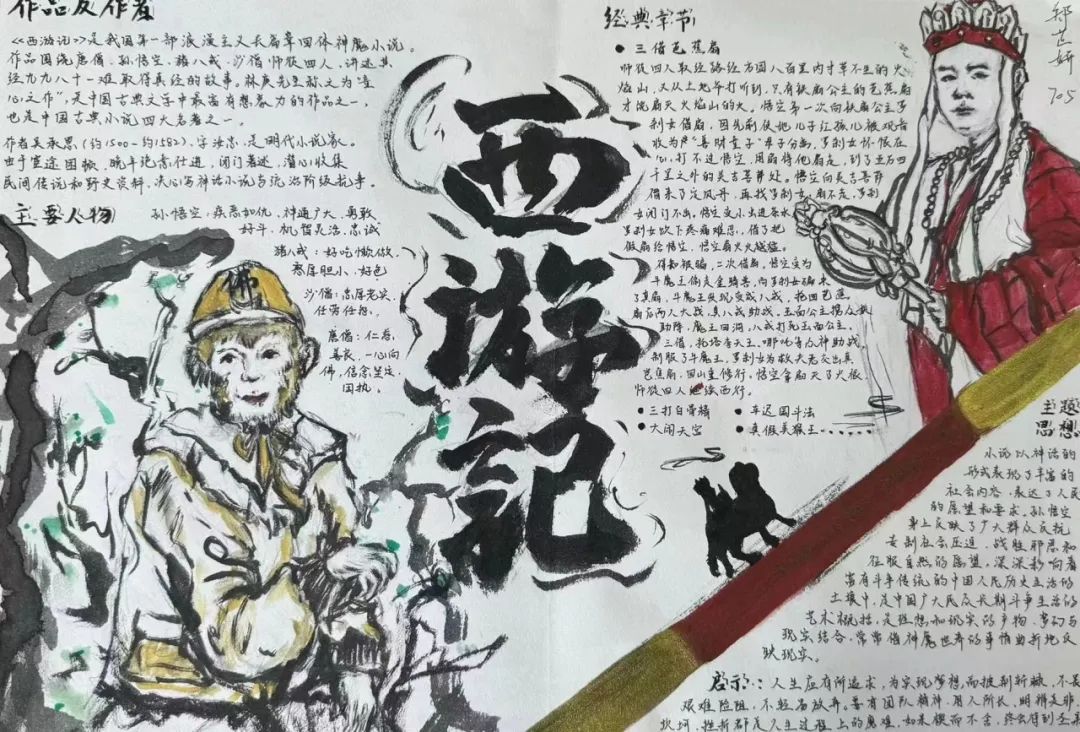 作品及作者
《西游记》是我国第一部浪漫主义长篇章回体神魔小说。
作品围绕唐僧、孙悟空、猪八戒、沙僧师徒四人，讲述其
经九九八十一难取得真经的故事。林庚先生称之为“童
心之作”，是中国古典文学中最富有想象力的作品之一，
也是中国古典小说四大名著之一。
作者吴承恩（约1500-约1582），字汝忠，是明代小说家。
由于宦途困顿，晚年绝意仕进，闭门著述，潜心收集
民间传说和野史资料，决心写神话小说与统治阶级抗争。
主要人物
孙悟空：疾恶如仇，神通广大、勇敢
好斗、机智灵活、忠诚
猪八戒：好吃懒做、
憨厚胆小、好色
沙僧：忠厚老实、
任劳任怨、
唐僧：仁慈、
善良、一心向
佛，信念坚定、
固执。
佛
西游記
经典章节
• 三借芭蕉扇
师徒四人取经路经方圆八百里内寸草不生的火
焰山，又从土地爷打听到，只有铁扇公主的芭蕉扇
才能扇灭火焰山的火。悟空第一次向铁扇公主罗
刹女借扇，因先前使他儿子红孩儿被观音
收为“善财童子”母子分离，罗刹女怀恨在
心，打不过悟空，用扇将他扇走，到了五万四
千里之外的灵吉菩萨处。悟空向灵吉菩萨
借来了定风丹，再找罗刹女，扇不走，罗刹
女闭门不出，悟空变小虫进茶水
罗刹女饮下疼痛难忍，借了把
假扇给悟空，悟空扇火火越猛。
得知被骗，二次借扇，悟空变为
牛魔王偷走金睛兽，向罗刹女骗来
了真扇，牛魔王发现变成八戒，拖回芭蕉
扇后两人大战，真八戒助战，玉面公主携众妖
助阵，魔王回洞，八戒打死玉面公主。
三借，托塔李天王、哪吒等众神助战
制服了牛魔王，罗刹女为救夫君交出真
芭蕉扇，回山重修行，悟空拿扇灭了火根，
师徒四人继续西行。
• 三打白骨精 • 车迟国斗法
• 大闹天宫 • 真假美猴王……
郑芷妍
705
主题
思想
小说以神话的
形式表现了丰富的
社会内容，表达了人民
的愿望和要求。孙悟空
身上反映了广大群众反抗
专制社会压迫、战胜邪恶和
征服自然的愿望，深深影响着
富有斗争传统的中国人民历史生活的
土壤中，是中国广大民众长期斗争生活的
艺术概括，是理想和现实的产物，梦幻与
现实结合，常常借神魔世界的事情曲折地反
映现实。
启示：人生应有所追求，为实现梦想而披荆斩棘，不畏
艰难险阻，不轻易放弃。要有团队精神，用人所长，明辨是非，
坎坷、挫折都是人生过程上的勇难，如果锲而不舍，终会得到